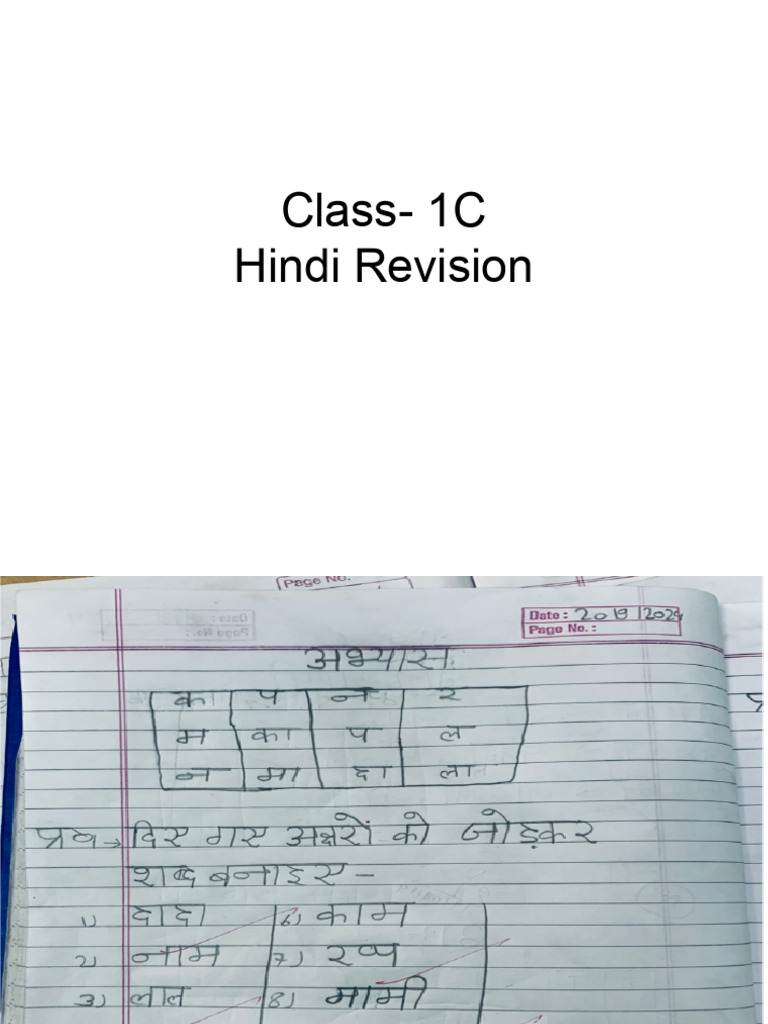 Class- 1C
Hindi Revision
Page No.
Date : 2019/2024
Page No. :
अभ्यास
का प न र
म का प ल
न मा दा ला
प्रश्न → दिए गए अक्षरों को जोड़कर
शब्द बनाइए -
1) दादा 6) काम
2) नाम 7)
3) लाल 8) मामी